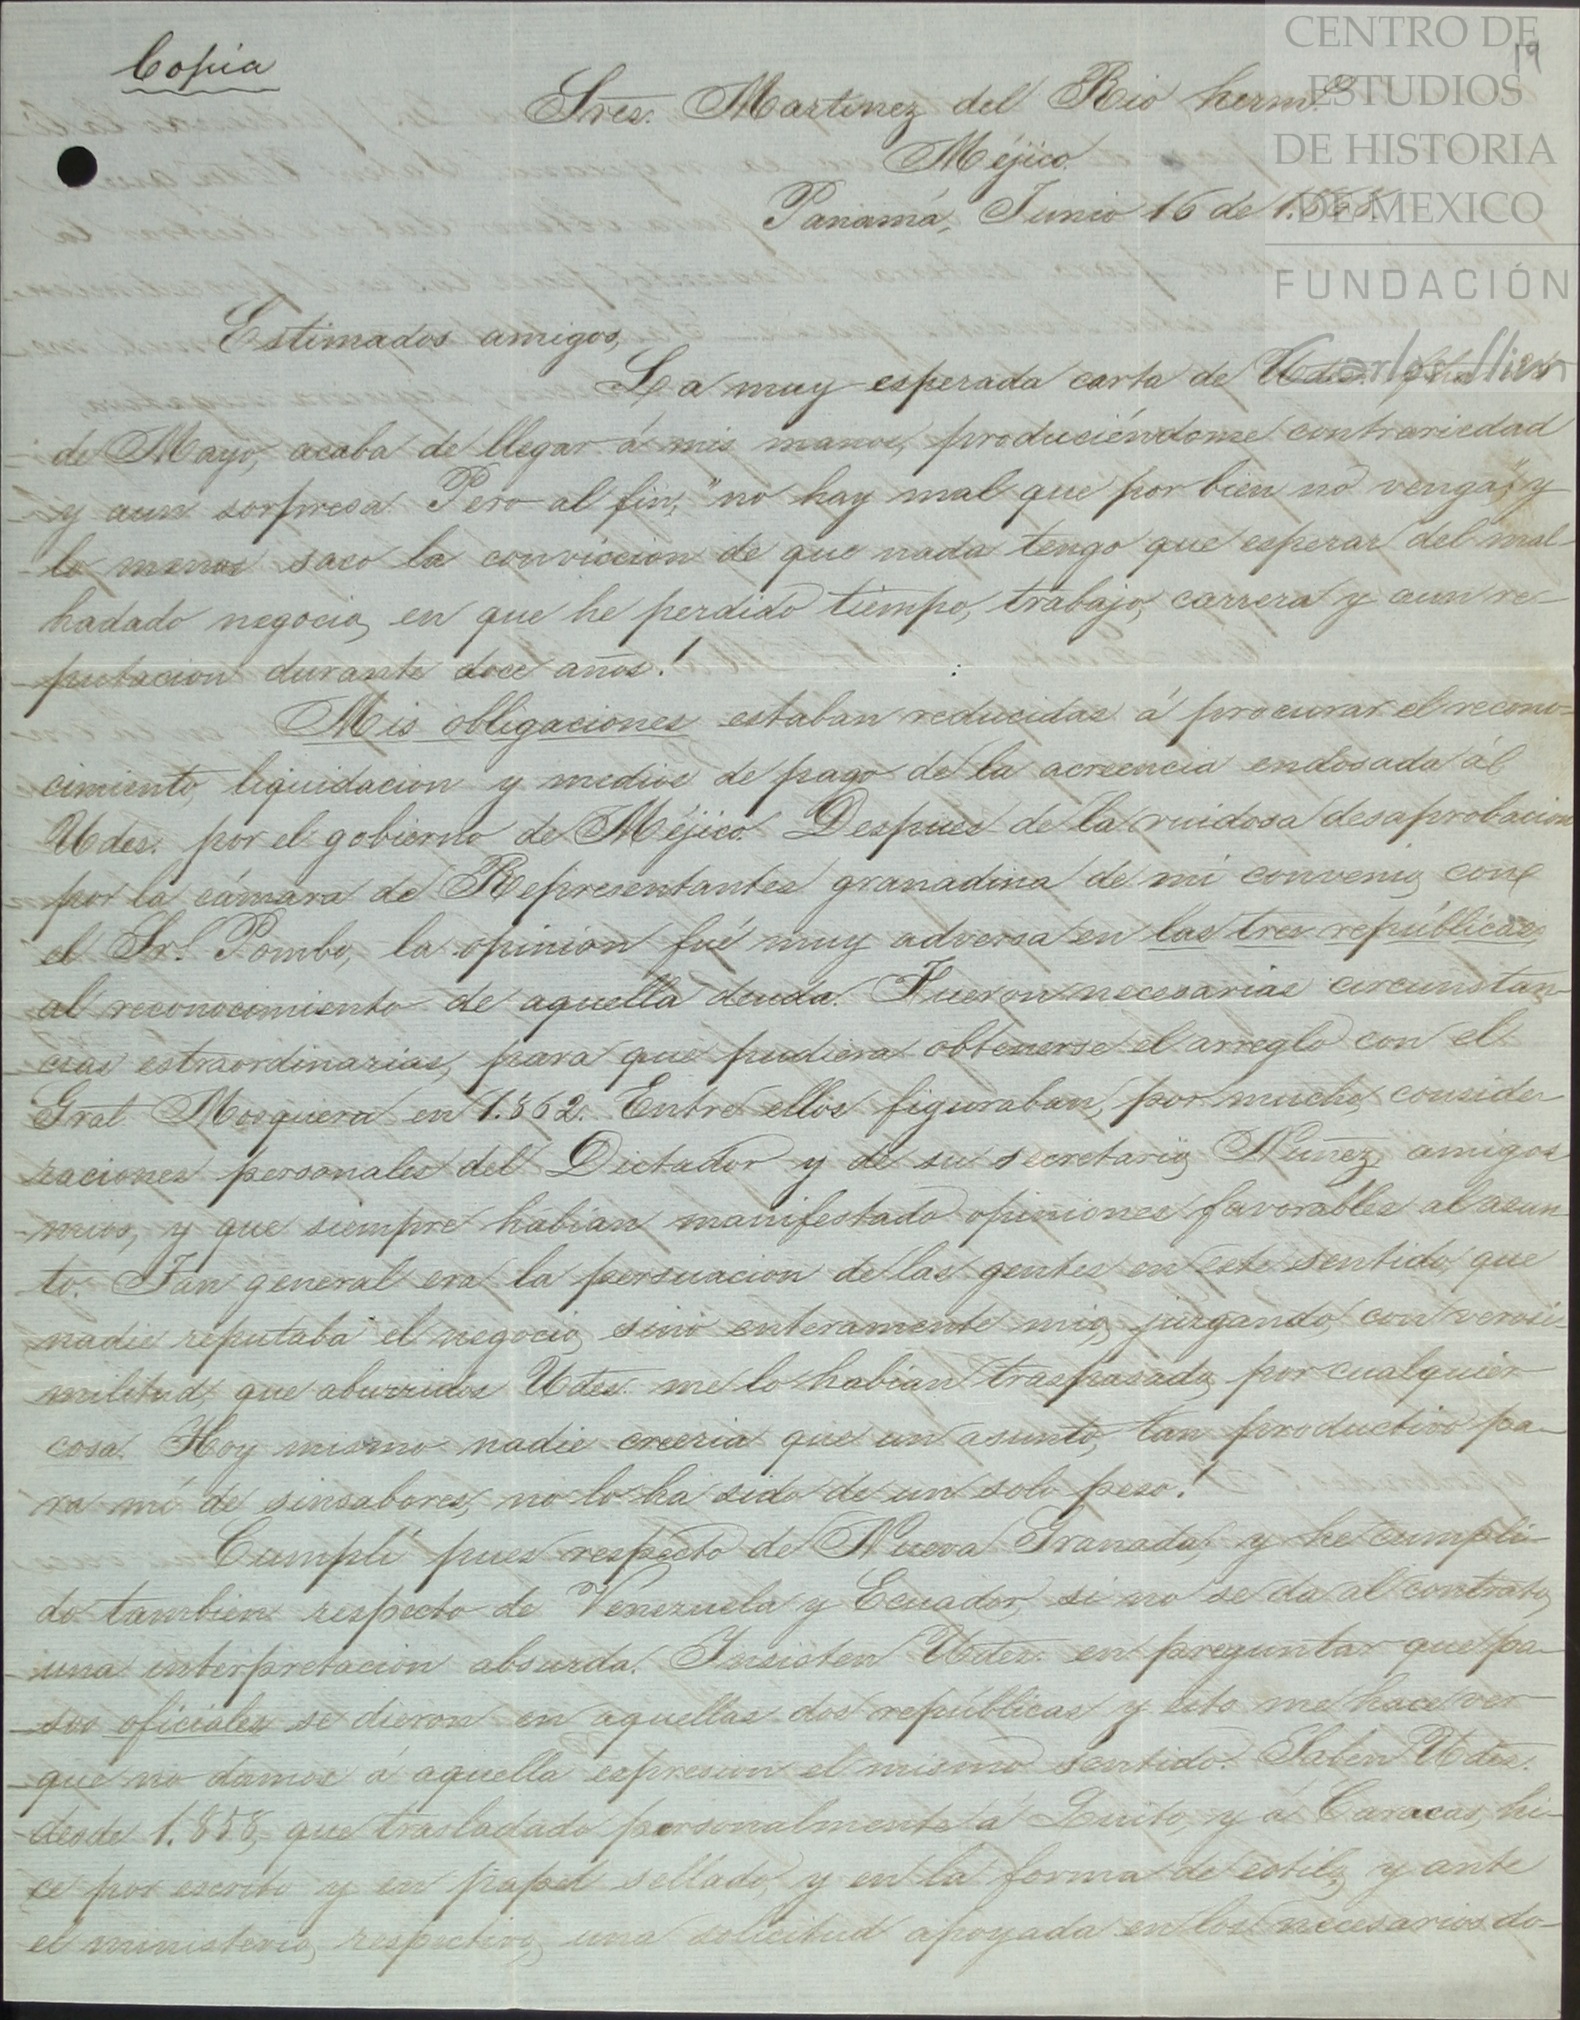 Copia
19
Sres. Martinez del Rio herm.s
Méjico.
Panamá, Junio 16 de 1.868.
CENTRO DE
ESTUDIOS
DE HISTORIA
DE MEXICO
FUNDACIÓN
Carlos Slim
Estimados amigos,
La muy esperada carta de Udes.
de Mayo, acaba de llegar á mis manos, produciéndome contrariedad
y aun sorpresa. Pero al fin, "no hay mal que por bien no venga," y
lo menos saco la conviccion de que nada tengo que esperar del mal-
hadado negocio, en que he perdido tiempo, trabajo, carrera y aun re-
putacion durante doce años!
Mis obligaciones estaban reducidas á procurar el recono-
cimiento, liquidacion y medios de pago de la acreencia endosada á
Udes. por el gobierno de Méjico. Despues de la ruidosa desaprobacion
por la cámara de Representantes granadina de mi convenio con
el Sr. Pombo, la opinion fué muy adversa en las tres repúblicas,
al reconocimiento de aquella deuda. Fueron necesarias circunstan-
cias estraordinarias, para que pudiera obtenerse el arreglo con el
Gral Mosquera en 1.862. Entre ellos figuraban, por mucho, conside-
raciones personales del Dictador y de su secretario Nuñez, amigos
mios, y que siempre habian manifestado opiniones favorables al asun-
to. Tan general era la persuacion de las gentes en este sentido, que
nadie reputaba el negocio, sino enteramente mio, juzgando, con verosi-
militud, que aburridos Udes. me lo habian traspasado, por cualquier
cosa. Hoy mismo nadie creeria que un asunto, tan productivo pa-
ra mí de sinsabores, no lo ha sido de un solo peso!
Cumplí pues respecto de Nueva Granada, y he cumpli-
do tambien respecto de Venezuela y Ecuador, si no se da al contrato,
una interpretacion absurda. Insisten Udes. en preguntar que pa-
sos oficiales se dieron en aquellas dos repúblicas y esto me hace ver
que no damos á aquella espresion el mismo sentido. Saben Udes.
desde 1.858, que trasladado personalmente á Quito, y á Caracas, hi-
ce por escrito y en papel sellado, y en la forma de estilo, y ante
el ministerio respectivo, una solicitud apoyada en los necesarios do-